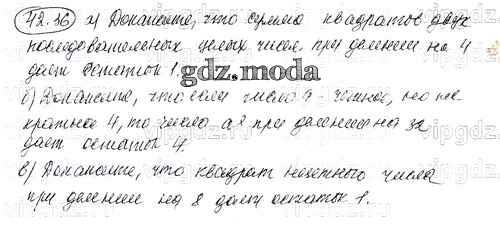 42.36 а) Докажите, что сумма квадратов двух
последовательных целых чисел при делении на 4
дает остаток 1.
gdz.moda
б) Докажите, что если число a - четное, но не
кратное 4, то число a² при делении на 32
дает остаток 4
в) Докажите, что квадрат нечетного числа
при делении на 8 дает остаток 1.